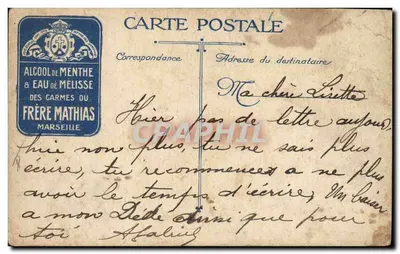 CARTE POSTALE
Correspondance
Adresse du destinataire
ALCOOL DE MENTHE
& EAU DE MÉLISSE
DES CARMES DU
FRÈRE MATHIAS
MARSEILLE
Ma chere Lisette
Hier pas de lettre aujour
hui non plus, tu ne sais plus
écrire, tu recommences a ne plus
avoir le temps d'écrire, Un baiser
a mon Dédé ainsi que pour
toi
CPAPHIL